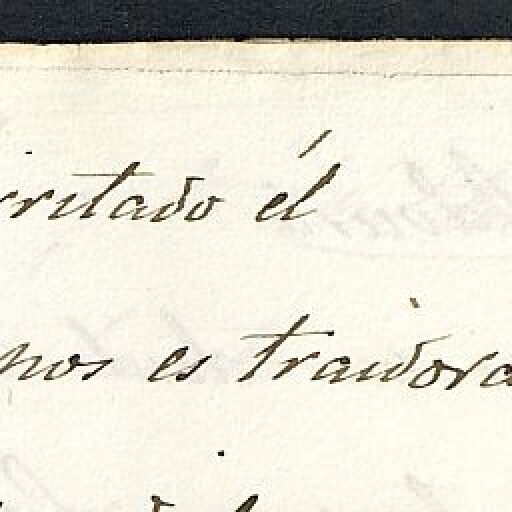 irritado él
nos es traidora